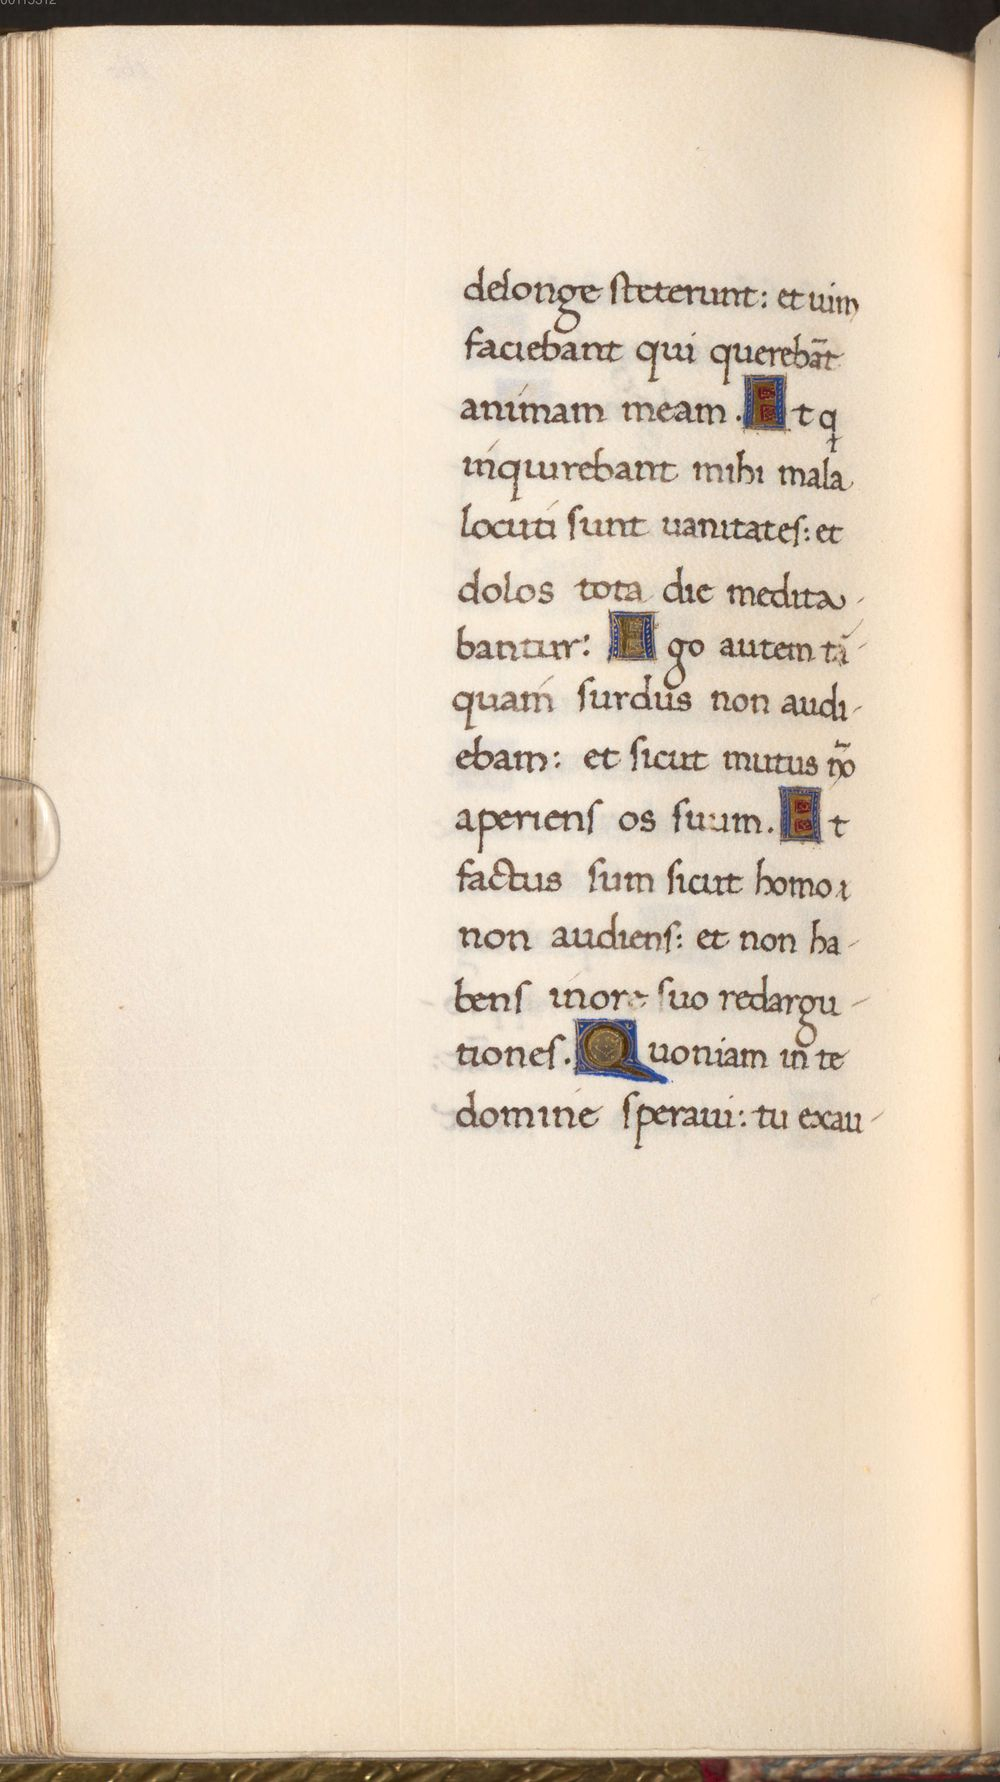 delonge steterunt: et uim
faciebant qui querebãt
animam meam. Et q
inquirebant mihi mala
locuti sunt uanitates: et
dolos tota die medita-
bantur: Ego autem tã-
quam surdus non audi-
ebam: et sicut mutus nõ
aperiens os suum. Et
factus sum sicut homo
non audiens: et non ha-
bens in ore suo redargu-
tiones. Quoniam in te
domine speraui: tu exau-